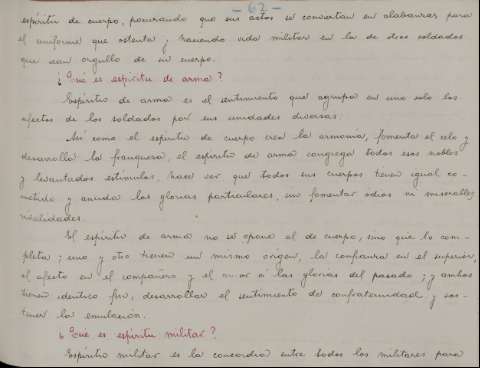 - 62 -
espíritu de cuerpo, procurando que sus actos se conviertan en alabanzas para
el uniforme que ostenta y haciendo vida militar en la de dios soldados
que dan orgullo de su cuerpo.
¿Qué es espíritu de arma?
Espíritu de arma es el sentimiento que agrupa en uno solo los
afectos de los soldados por sus unidades diversas.
Así como el espíritu de cuerpo crea la armonía, fomenta el celo y
desarrolla la franqueza, el espíritu de arma congrega todos esos nobles
y levantados estímulos, hace ver que todos sus cuerpos tienen igual co-
metido y anuda las glorias particulares, sin fomentar odios ni miserables
rivalidades.
El espíritu de arma no se opone al de cuerpo, sino que lo com-
pleta; uno y otro tienen un mismo origen, la confianza en el superior,
el afecto en el compañero y el amor a las glorias del pasado; y ambos
tienen idéntico fin, desarrollar el sentimiento de confraternidad y sos-
tener la emulación.
¿Qué es espíritu militar?
Espíritu militar es la concordia entre todos los militares para